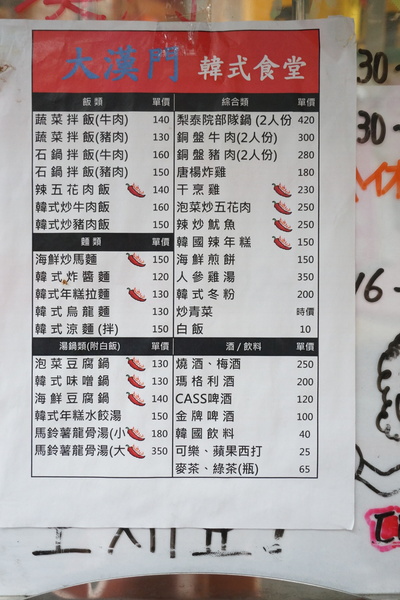 大漢門 韓式食堂
飯類 單價
蔬菜拌飯(牛肉) 140
蔬菜拌飯(豬肉) 130
石鍋拌飯(牛肉) 160
石鍋拌飯(豬肉) 150
辣五花肉飯 140
韓式炒牛肉飯 160
韓式炒豬肉飯 150
麵類 單價
海鮮炒馬麵 150
韓式炸醬麵 120
韓式年糕拉麵 130
韓式烏龍麵 130
韓式涼麵(拌) 150
湯鍋類(附白飯) 單價
泡菜豆腐鍋 130
韓式味噌鍋 130
海鮮豆腐鍋 140
韓式年糕水餃湯 150
馬鈴薯龍骨湯(小 180
馬鈴薯龍骨湯(大 350
綜合類 單價
梨泰院部隊鍋(2人份 420
銅盤牛肉(2人份) 300
銅盤豬肉(2人份) 280
唐楊炸雞 180
干烹雞 230
泡菜炒五花肉 250
辣炒魷魚 250
韓國辣年糕 150
海鮮煎餅 150
人參雞湯 350
韓式冬粉 200
炒青菜 時價
白飯 10
酒/飲料 單價
燒酒、梅酒 250
瑪格利酒 200
CASS啤酒 120
金牌啤酒 100
韓國飲料 40
可樂、蘋果西打 25
麥茶、綠茶(瓶) 65